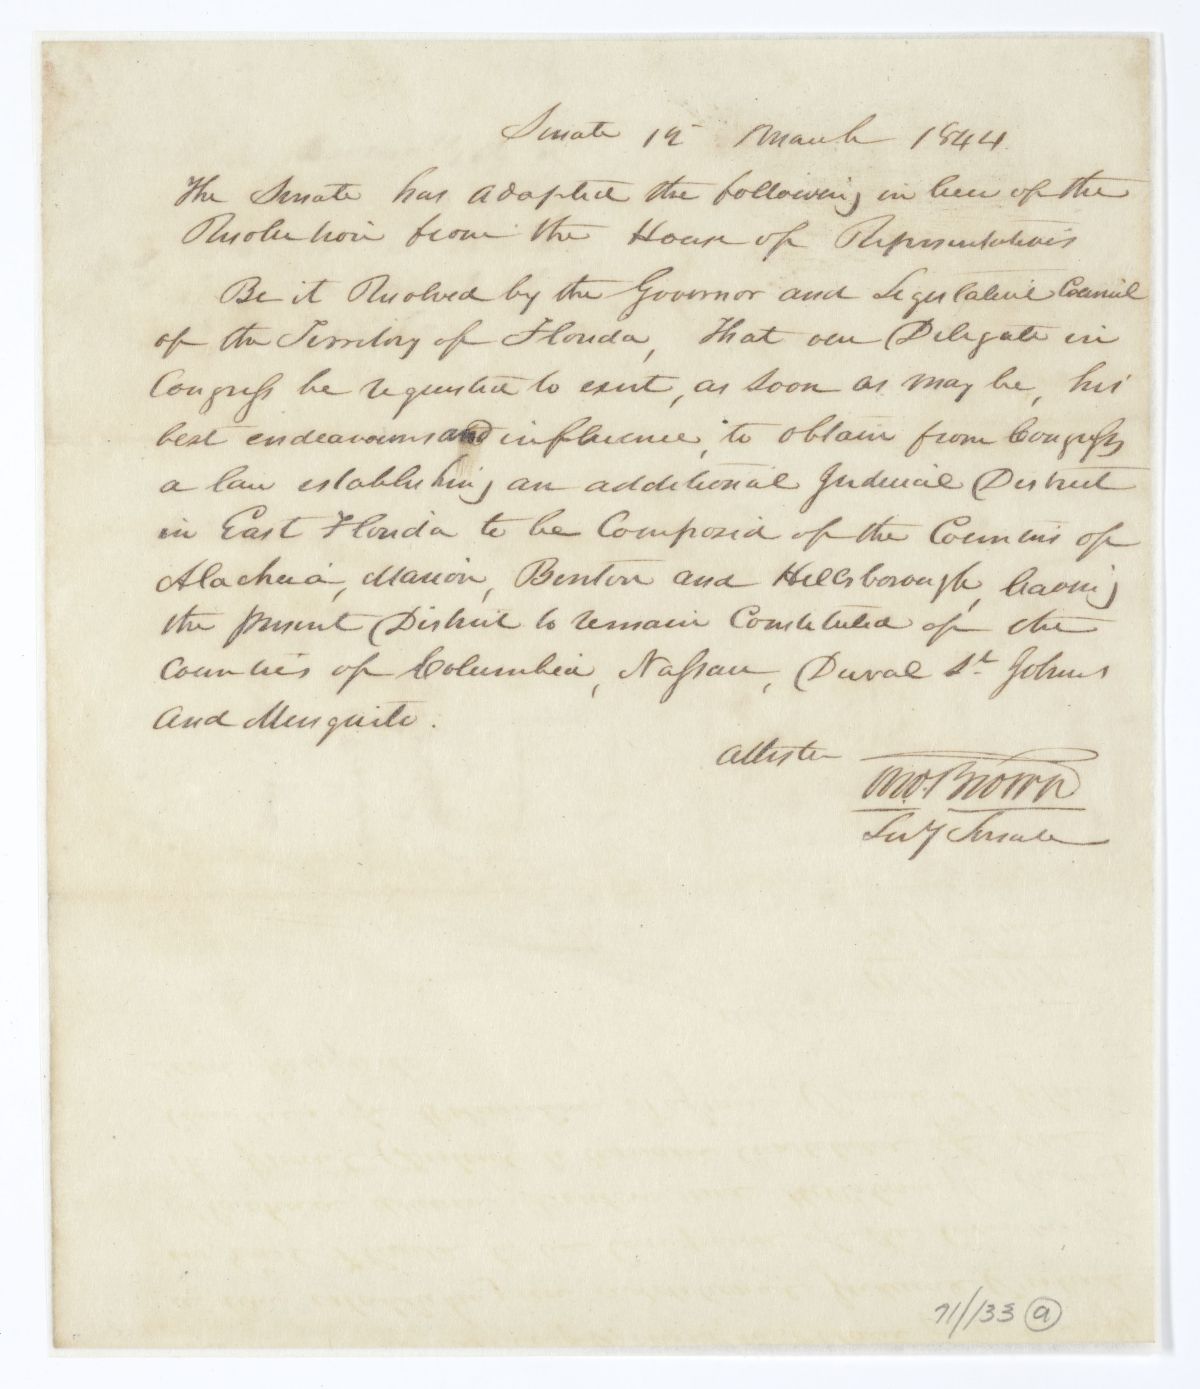 Senate 12 March 1844
The Senate has adopted the following in lieu of the
Resolution from the House of Representatives
Be it Resolved by the Governor and Legislative Council
of the Territory of Florida, That our Delegate in
Congress be requested to exert, as soon as may be, his
best endeavours and influence, to obtain from Congress
a law establishing an additional Judicial District
in East Florida to be Composed of the Counties of
Alachua, Marion, Benton and Hillsborough, leaving
the present District to remain Constituted of the
Counties of Columbia, Nassau, Duval St. Johns
And Musquito.
Attester
Tho. Brown
Secy Senate
71/133 a